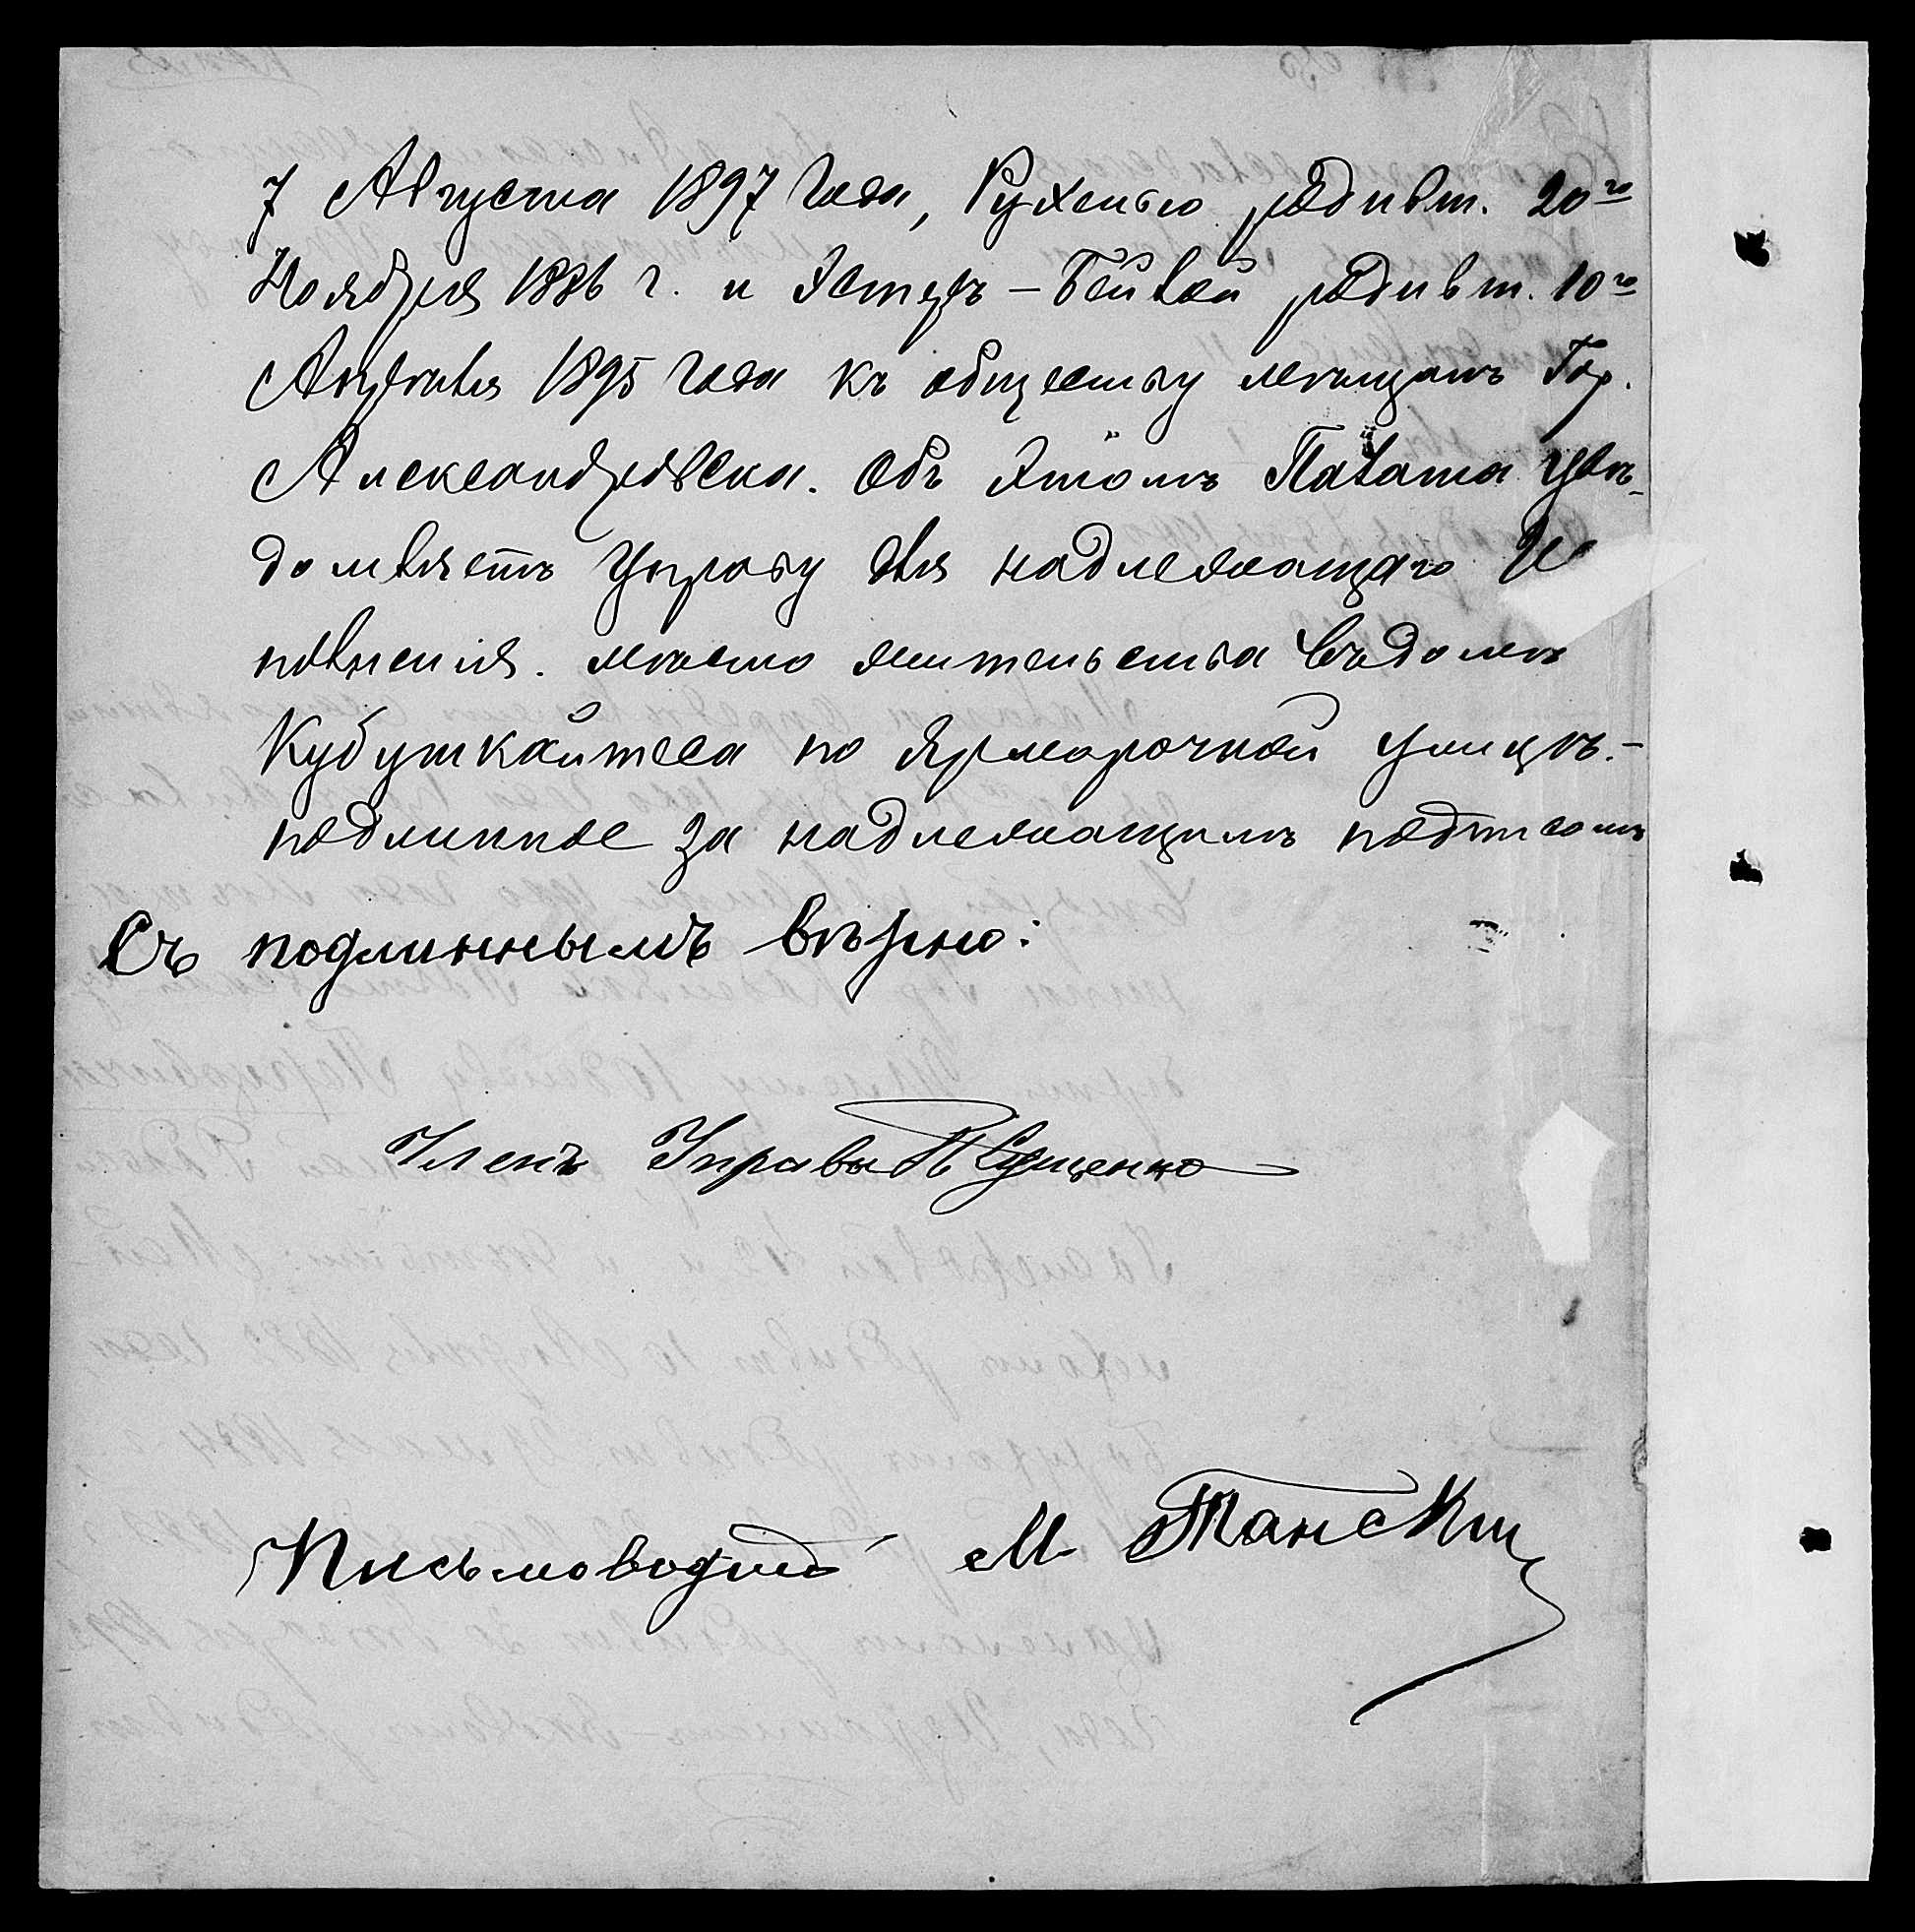 7 Августа 1897 Года, Рухелью родивш. 20го
Ноября 1886 г. и Эстеръ-Бейлей родивш. 10го
Апрѣля 1895 Года къ обществу мѣщанъ Гор.
Александровска. Объ этомъ Палата увѣ-
домляетъ Управу для надлежащаго Ис
полненія. мѣсто жительства въ домѣ
по Ярмарочной улицѣ.-
подлинное за надлежащимъ подписомъ
Съ подлиннымъ вѣрно:
Членъ Управы П Сущенко
Письмоводит М. Танскій